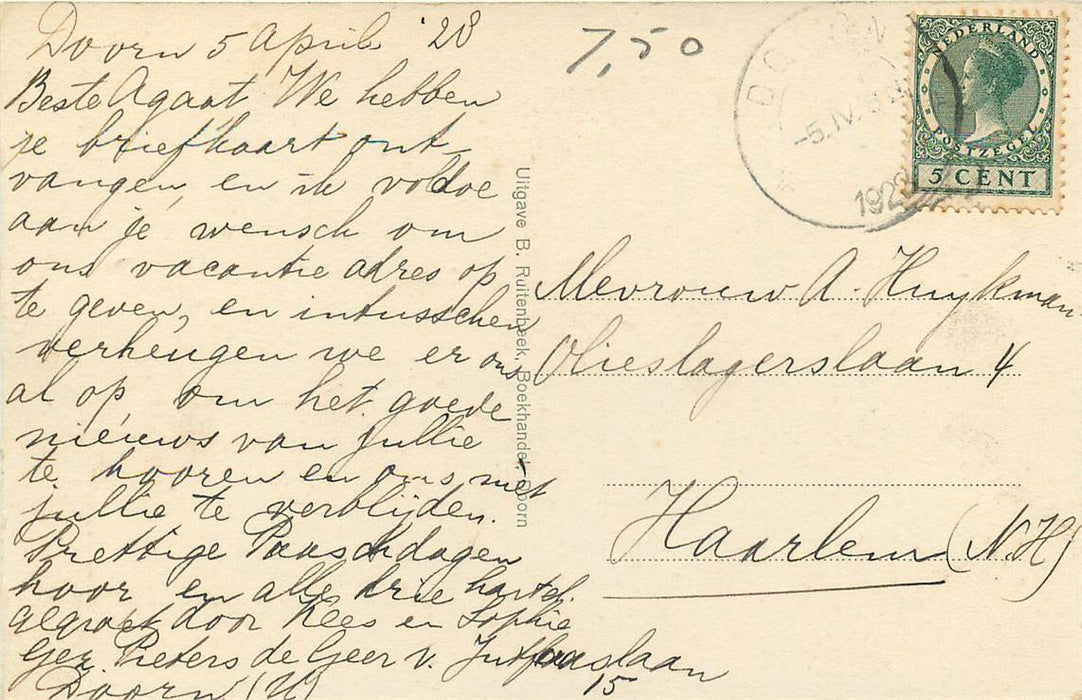 Doorn 5 April '28
Beste Agaat We hebben
je briefkaart ont-
vangen, en ik voldoe
aan je wensch om
ons vacantie adres op
te geven, en intusschen
verheugen we er ons
al op, om het goede
nieuws van jullie
te hooren en ons met
jullie te verblijden.
Prettige Paaschdagen
hoor en alle drie hartel.
gegroet door Kees en Sophie
Gez. Pieters de Geer v. Jutfaaslaan
15
Doorn (U)
Uitgave B. Ruitenbeek, Boekhandel, Doorn
7,50
DOORN
-5.IV.
1928
NEDERLAND
POSTZEGEL
5 CENT
Mevrouw A. Huykman
Olieslagerslaan 4
Haarlem (N.H)